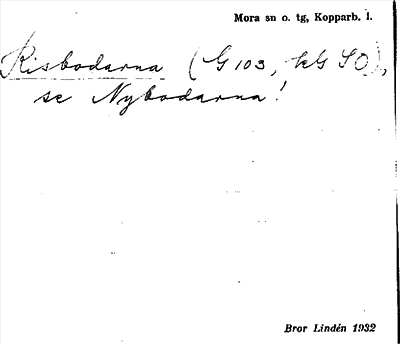 Mora sn o. tg, Kopparb. l.
Risbodarna (G 103, kG SO),
se Nybodarna!
Bror Lindén 1932